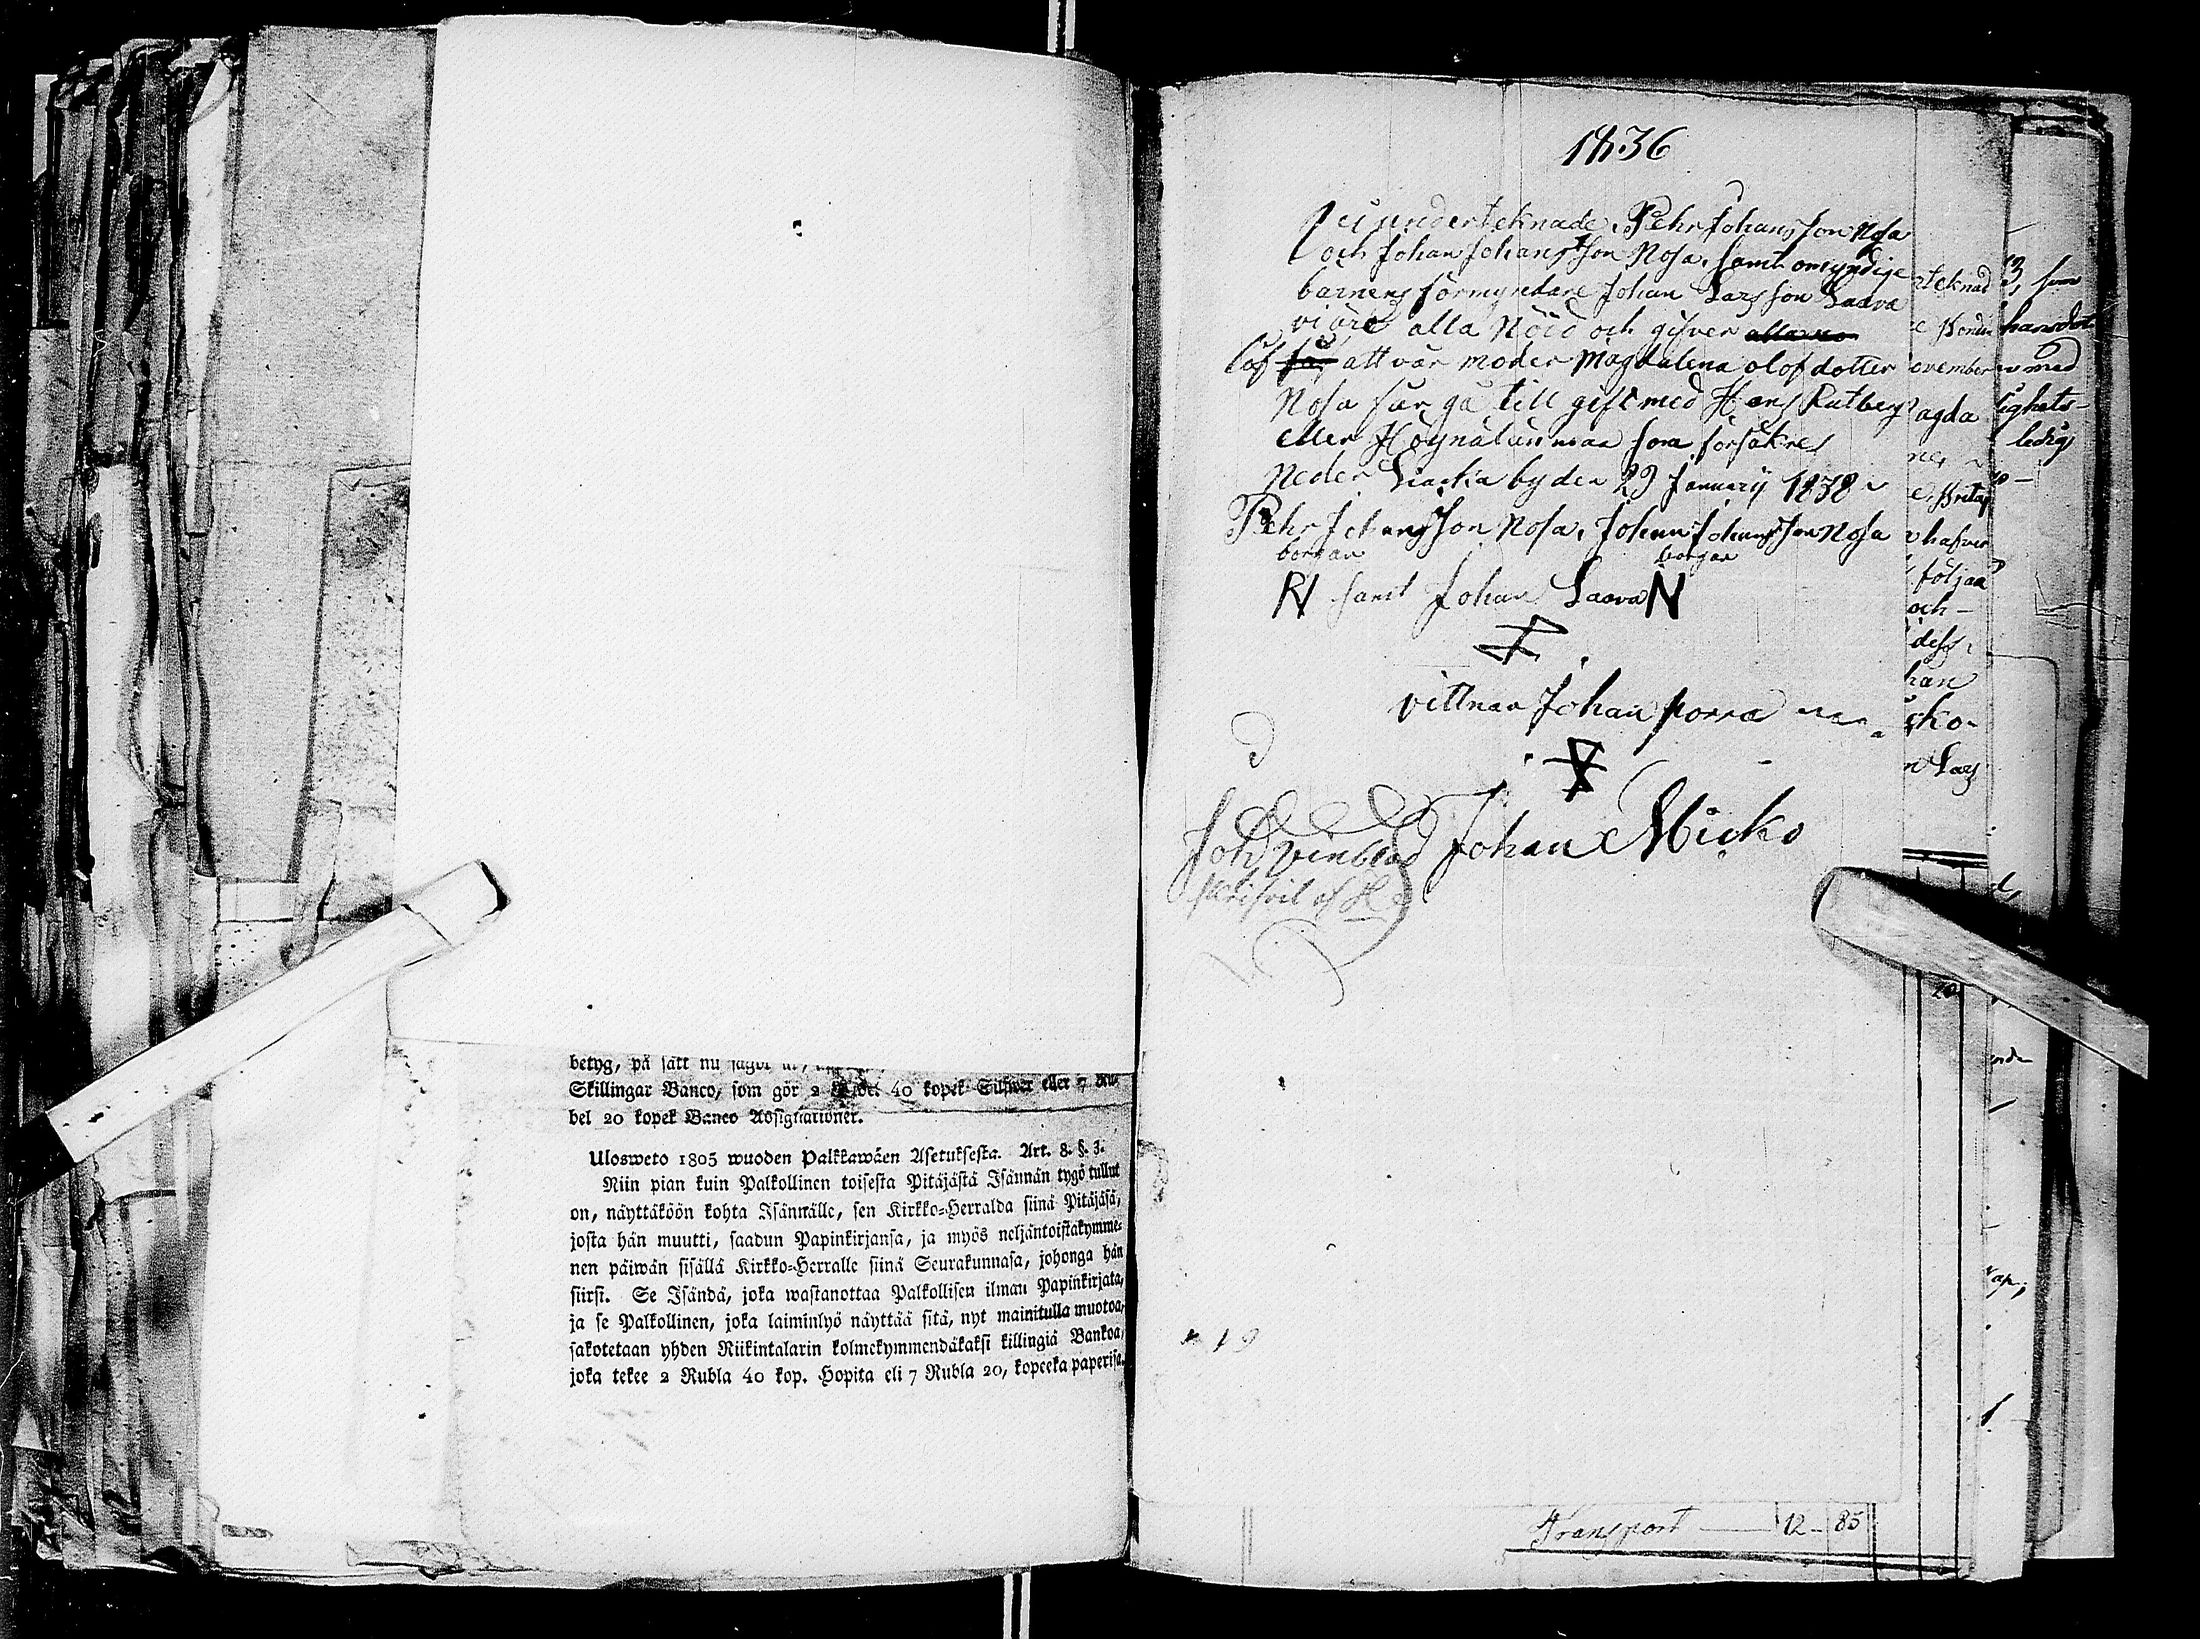 betyg, på sätt nu sagdt är,
Skillingar Banco, som gör 2 40 kopek Silfwer eller 7 Ru-
bel 20 kopek Banco Assignationer.
Ulosweto 1805 wuoden Palkkawäen Asetuksesta. Art. 8. §. 3.
Niin pian kuin Palkollinen toisesta Pitäjästä Isännän tygö tullut
on, näyttäköön kohta Isännälle, sen Kirkko-Herralda siinä Pitäjäsä,
josta hän muutti, saadun Papinkirjansa, ja myös neljäntoistakymme-
nen päiwän sisällä Kirkko-Herralle siinä Seurakunnasa, johonga hän
siirsi. Se Isändä, joka wastanottaa Palkollisen ilman Papinkirjata,
ja se Palkollinen, joka laiminlyö näyttää sitä, nyt mainitulla muotoa,
sakotetaan yhden Riikintalarin kolmekymmendäkaksi killingiä Bankoa,
joka tekee 2 Rubla 40 kop. Hopita eli 7 Rubla 20, kopeeka paperisa.
1836
underteknade Pehr Johansson Nosa
och Johan Johansson Nosa, samt omyndige
barnens förmyndare Johan Larsson Laava
vi äre alla Nöid och gifver
låf att vår moder Magdalena olofdotter
Nosa får gå till gift med Hans Rutberg
eller som försäkres
Neder Liacka by den 29 Januarij 1838
Pehr Johansson Nosa, Johan Johansson Nosa
borgan borgan
samt Johan Laava N
vittnar Johan porra
Johan Micko
Joh Vinblad
19
Transport 12 - 85
teknad
ovember
agda
hafver
följa
och -
dess
han
sko-
Lars
som
hansdot
med
lighets-
ledig